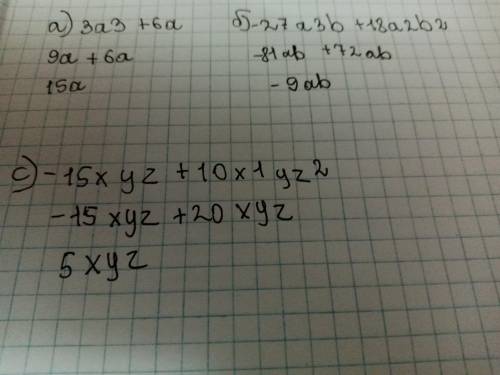 а) 3a3 + 6a
9a + 6a
15a
б) -27a3b + 18a2b2
-81ab + 72ab
- 9ab
c) -15xyz + 10x1yz2
-15xyz + 20xyz
5xyz